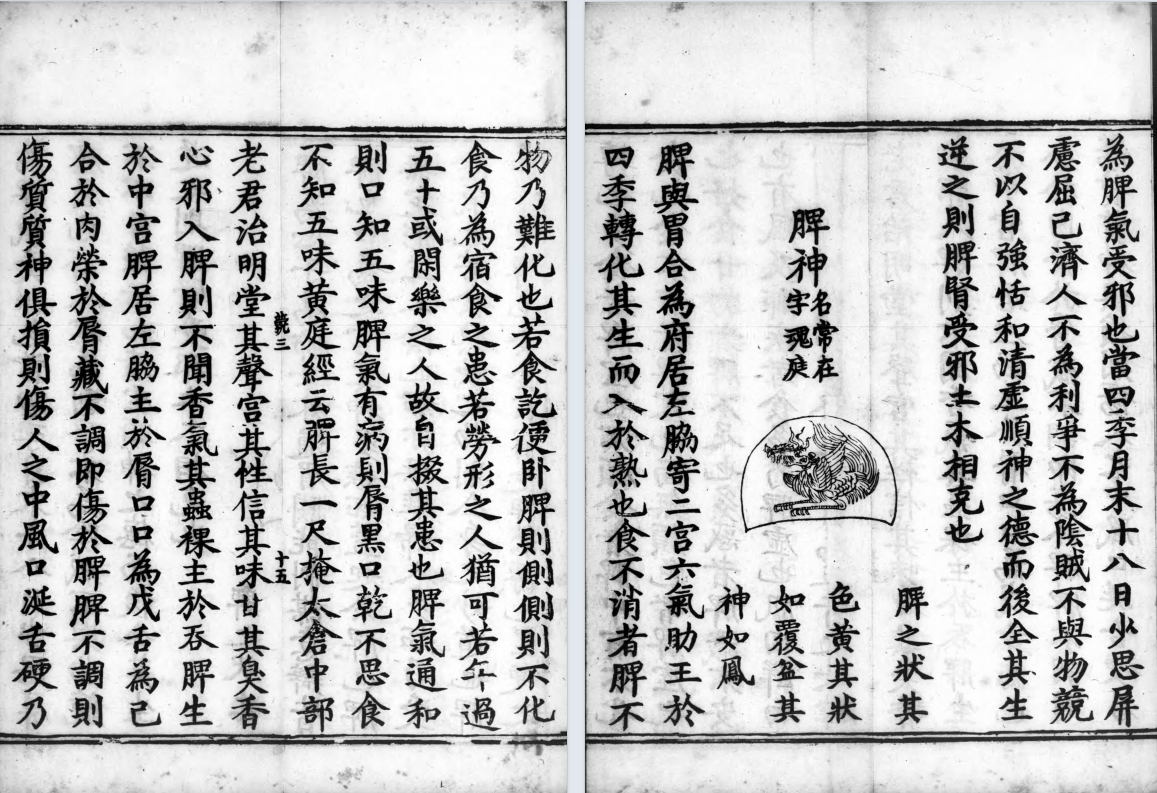 為脾氣受邪也當四季月末十八日少思屏
慮屈己濟人不為利爭不為陰賊不與物競
不以自強恬和清虛順神之德而後全其生
逆之則脾腎受邪土木相克也
脾神名常在
字魂庭
脾之狀其
色黃其狀
如覆盆其
神如鳳
脾與胃合為府居左脇寄二宫六氣助王於
四季轉化其生而入於熟也食不消者脾不
物乃難化也若食訖便卧脾則側側則不化
食乃為宿食之患若勞形之人猶可若年過
五十或閑樂之人故自掇其患也脾氣通和
則口知五味脾氣有病則脣黑口乾不思食
不知五味黃庭經云脾長一尺掩太倉中部
競三
十五
老君治明堂其聲宫其性信其味甘其臭香
心邪入脾則不聞香氣其蟲稞主於吞脾生
於中宫脾居左脇主於脣口口為戊舌為己
合於肉榮於脣藏不調即傷於脾脾不調則
傷質質神俱損則傷人之中風口涎舌硬乃